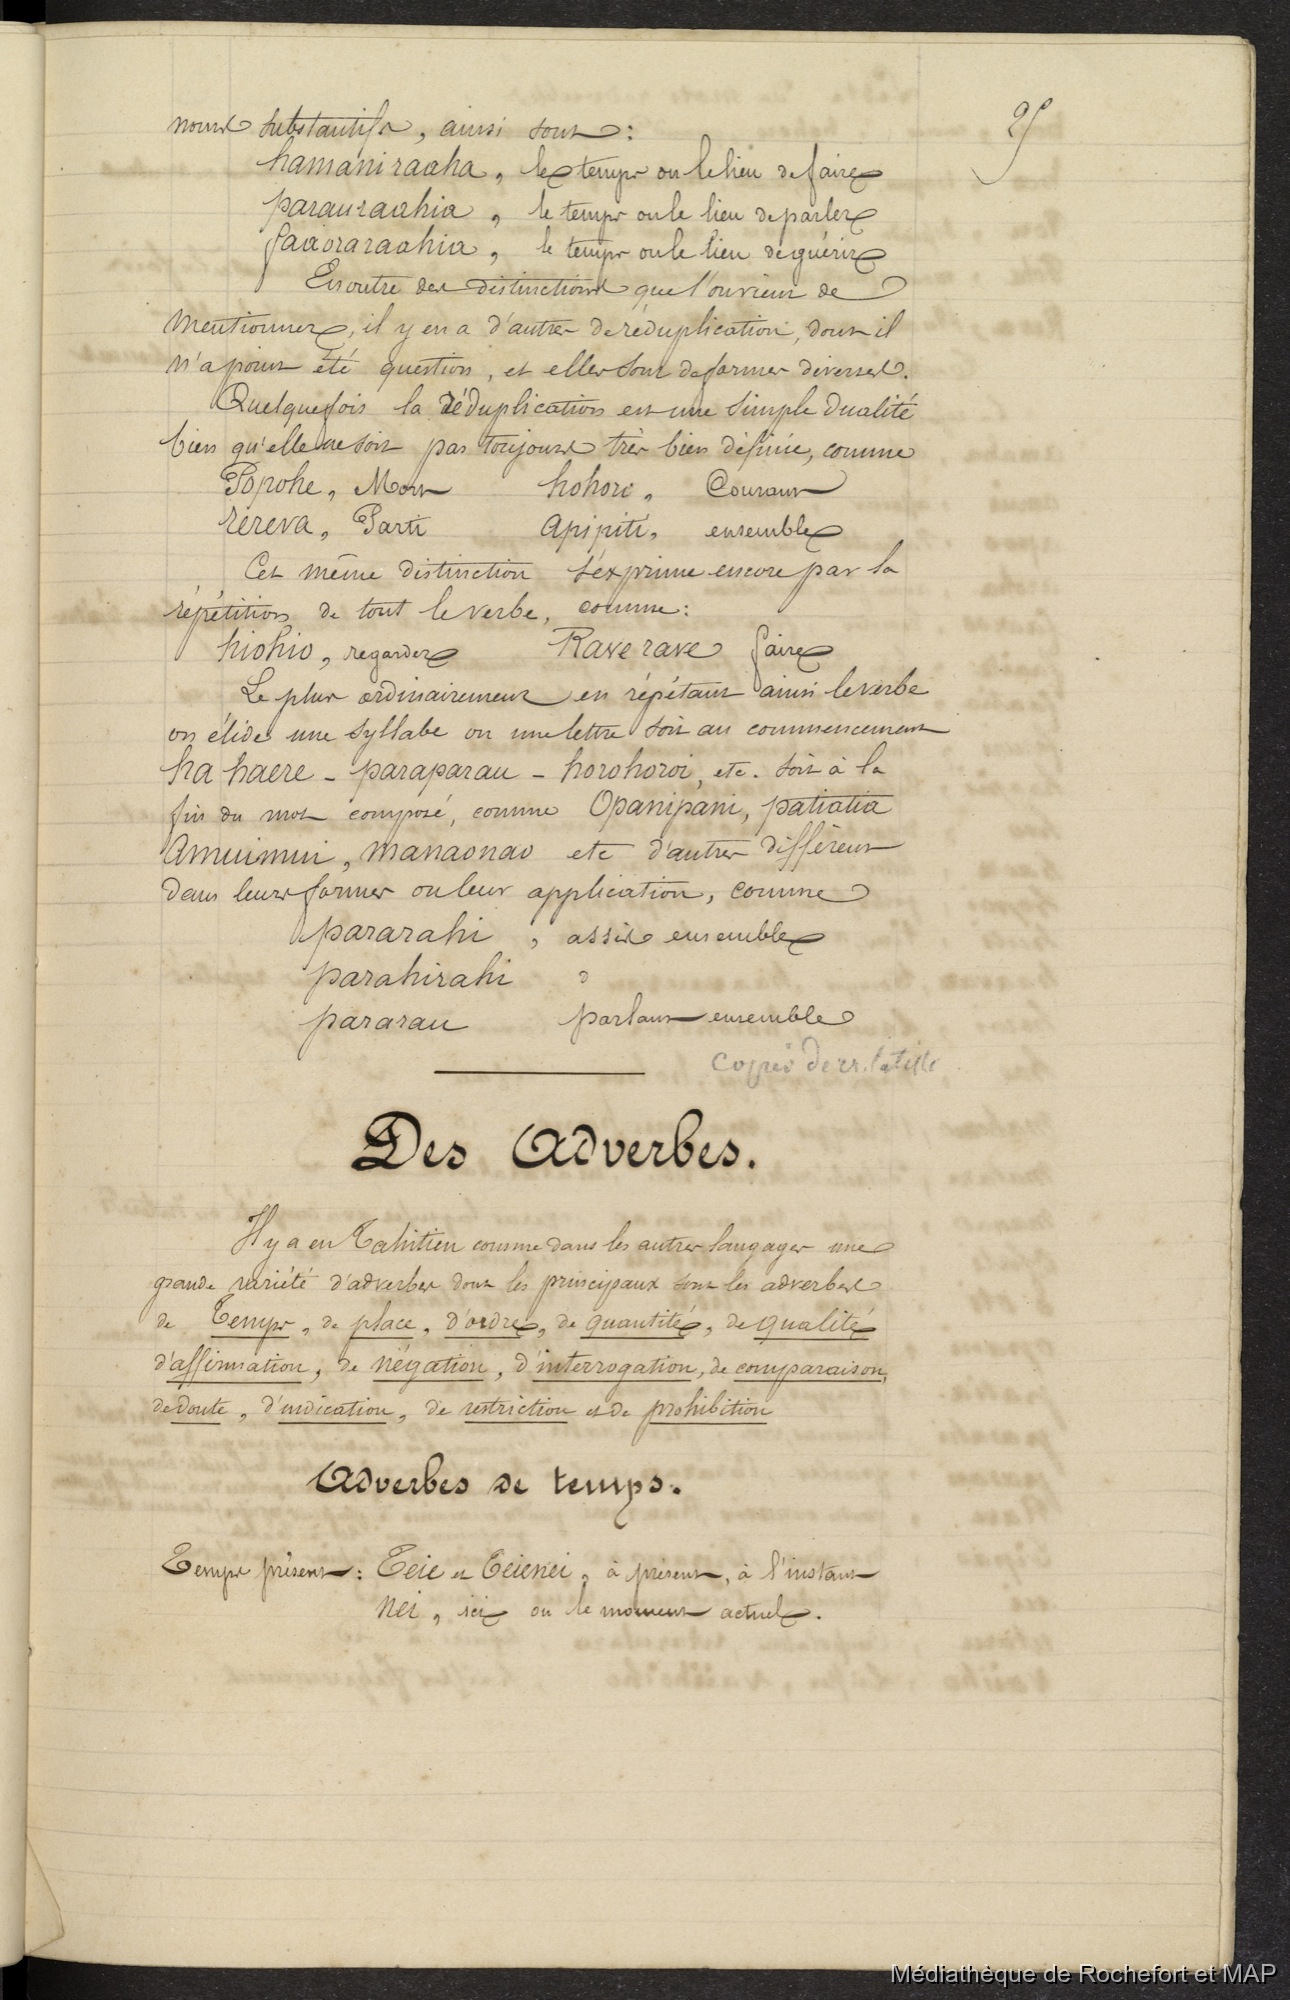 25
noms substantifs, ainsi sont :
hamaniraaha, le temps ou le lieu de faire
parauraahia, le temps ou le lieu de parler
faaoraraahia, le temps ou le lieu de guérir
En outre des distinctions que l'on vient de
mentionner, il y en a d'autres de réduplication, dont il
n'a point été question, et elles sont de formes diverses.
Quelquefois la réduplication est une simple dualité
bien qu'elle ne soit pas toujours très bien définie, comme
Popohe, Mort hohoro, Courant
rereva, Parti apipiti, ensemble
Cet même distinction s'exprime encore par la
répétition de tout le verbe, comme :
hiohio, regarder Rave rave faire
Le plus ordinairement en répétant ainsi le verbe
on élide une syllabe ou une lettre soit au commencement
ha haere - paraparau - horohoroi, etc. soit à la
fin du mot composé, comme Opanipani, patiatia
Amuimui, manaonao etc d'autres diffèrent
dans leurs formes ou leur application, comme
pararahi, assis ensemble
parahirahi "
pararau parlant ensemble
Copié
Des Adverbes.
Il y a en Tahitien comme dans les autres langages une
grande variété d'adverbes dont les principaux sont les adverbes
de Temps, de place, d'ordre, de quantité, de qualité
d'affirmation, de négation, d'interrogation, de comparaison,
de doute, d'indication, de restriction et de prohibition
Adverbes de temps.
Temps présent : Teie et Teienei, à présent, à l'instant
nei, ici ou le moment actuel.
Médiathèque de Rochefort et MAP